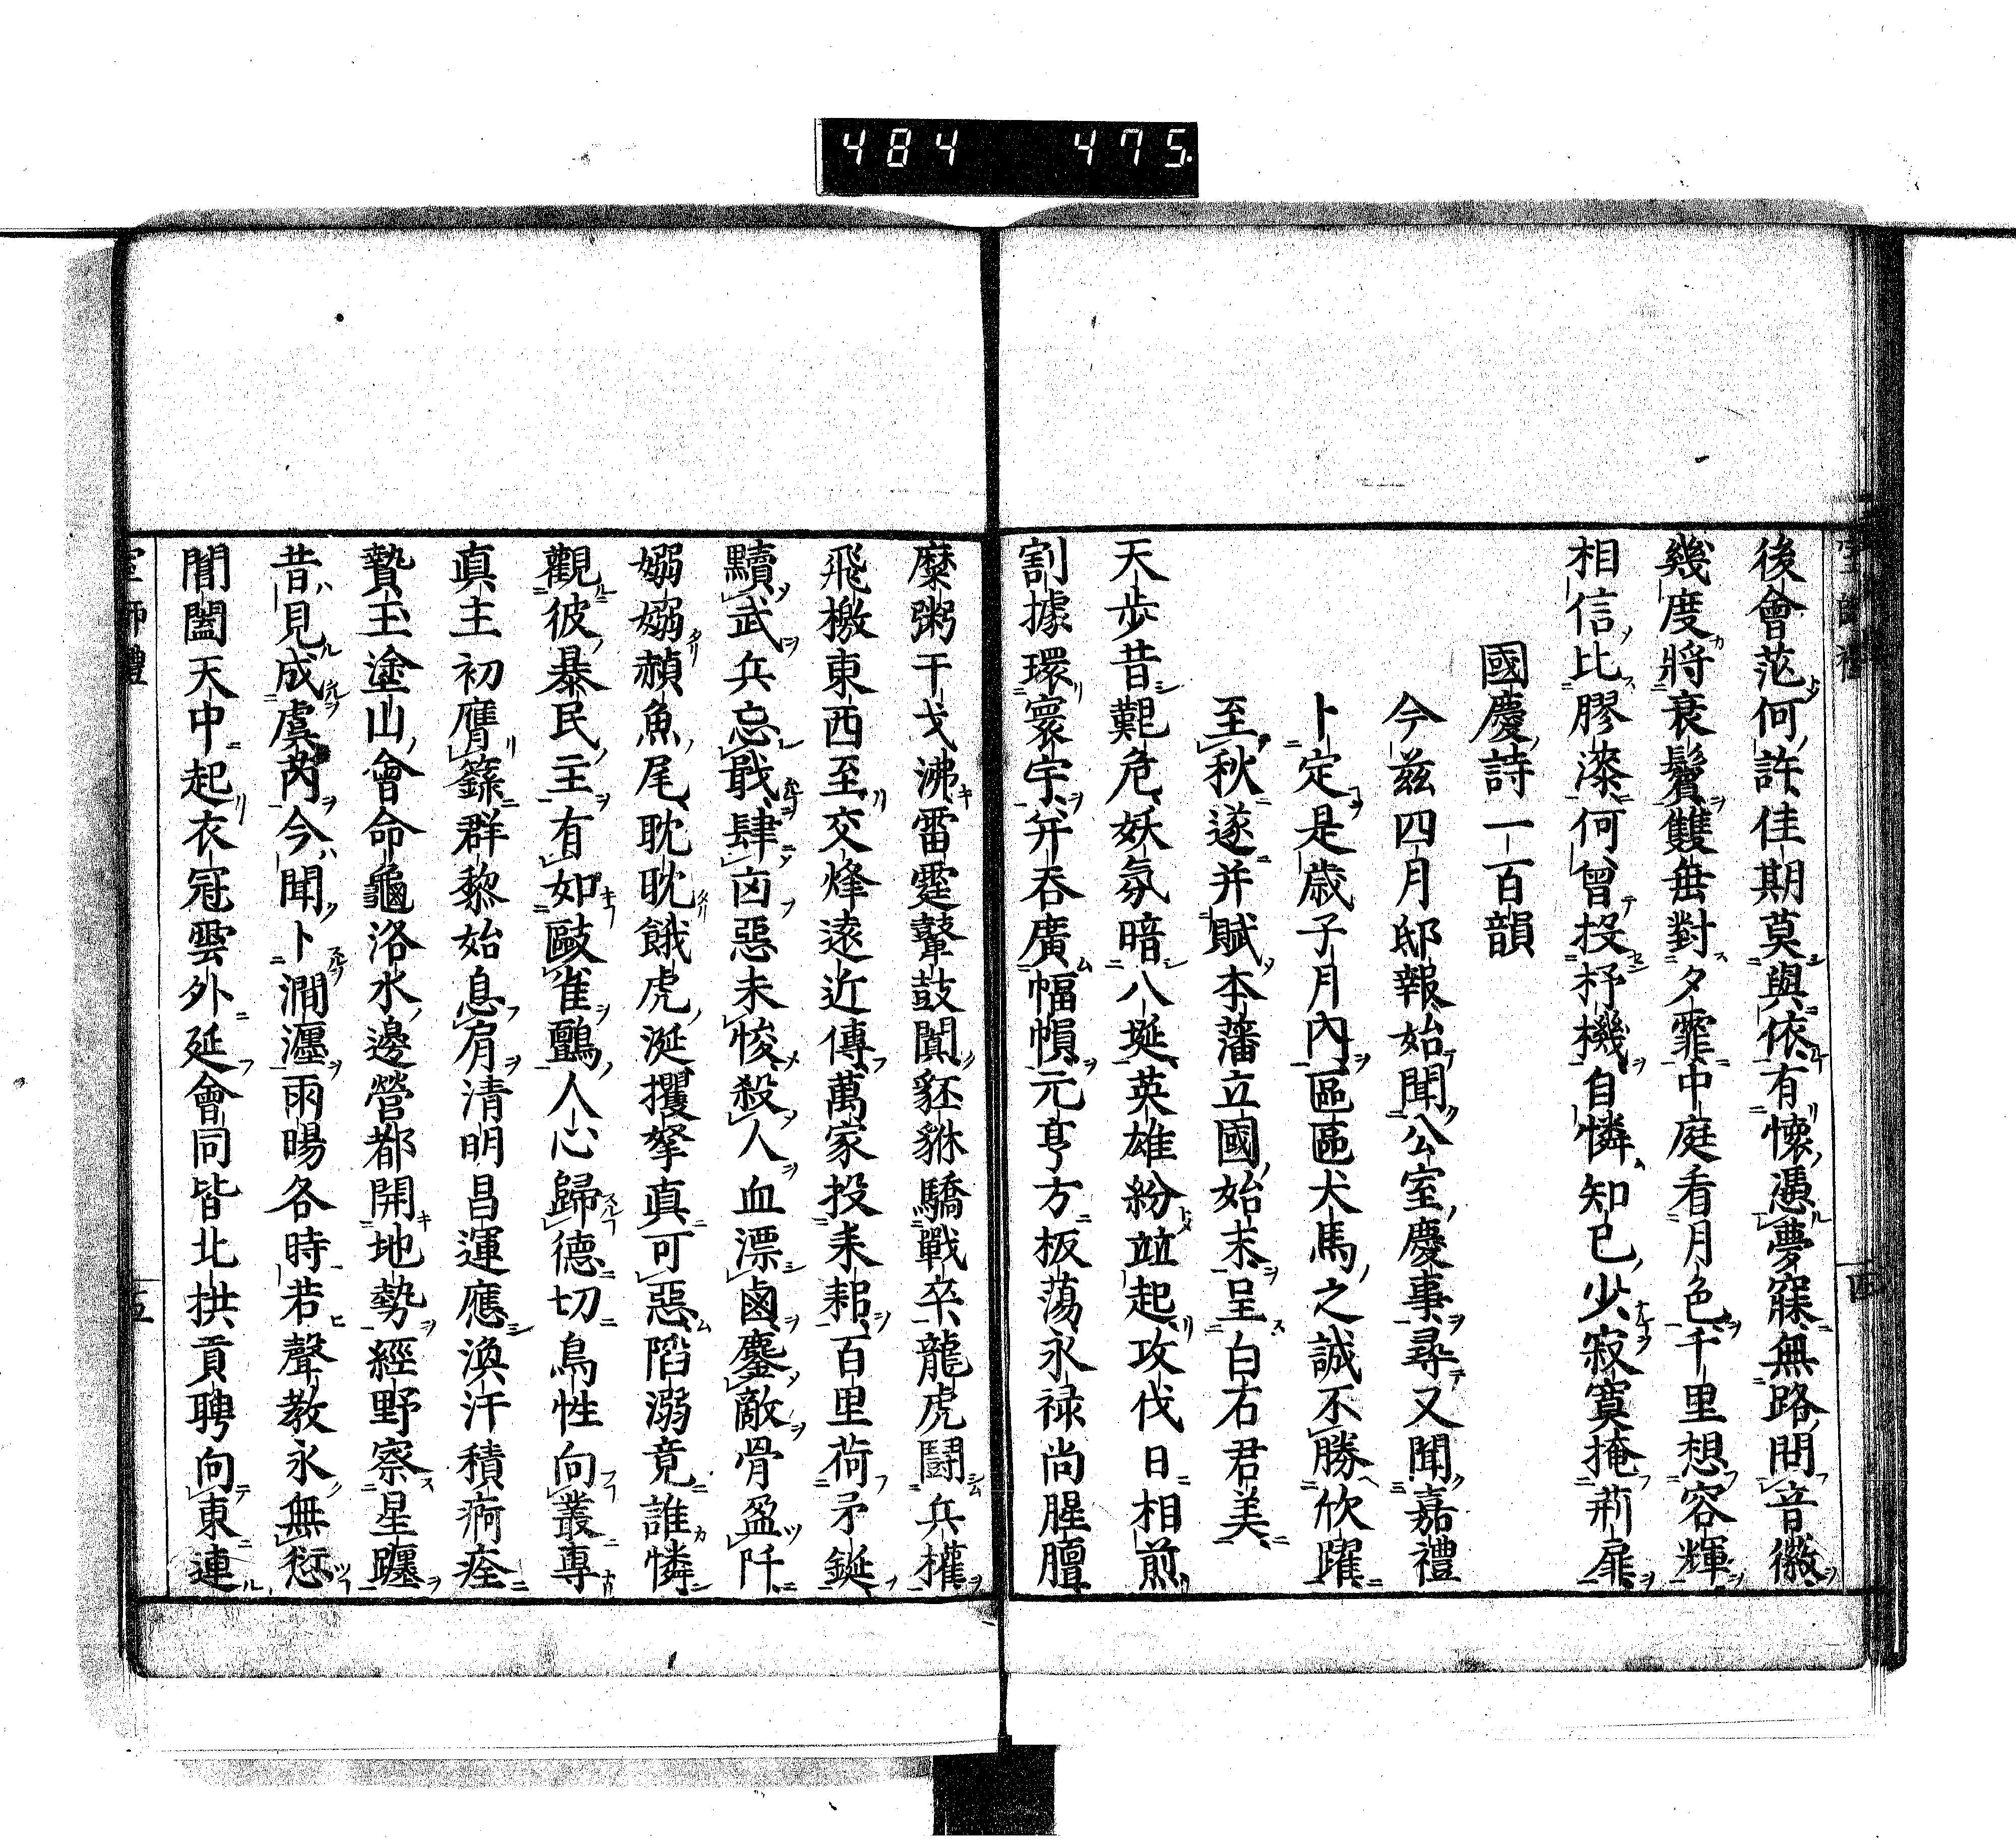 484 475.
後會茫何許佳期莫與依有懷憑夢寐無路問音徽
幾度將衰鬢雙垂對夕霏中庭看月色千里想容輝
相信比膠漆何曾投杼機自憐知已少寂寞掩荊扉
國慶詩一百韻
今茲四月邸報始聞公室慶事尋又聞嘉禮
卜定是歲子月內區區犬馬之誠不勝欣躍
至秋遂并賦本藩立國始末呈白右君美
天步昔艱危妖氛暗八埏英雄紛竝起攻伐日相煎
割據環寰宇并吞廣幅幀元亨方板蕩永禄尚腥膻
麋粥干戈沸雷霆鼙鼓闐豼貅驕戰卒龍虎鬪兵權
飛檄東西至交烽遠近傳萬家投耒耜百里荷矛鋋
黷武兵忘戢肆凶惡未悛殺人血漂鹵鏖敵骨盈阡
嫋嫋赬魚尾耽耽餓虎涎攫拏真可惡陷溺竟誰憐
觀彼暴民主有如敺雀鸇人心歸德切鳥性向叢專
真主初膺籙群黎始息肩清明昌運應渙汗積痾痊
贄玉塗山會命龜洛水邊營都開地勢經野察星躔
昔見成虞芮今聞卜澗瀍雨暘各時若聲教永無愆
閶闔天中起衣冠雲外延會同皆北拱貢聘向東連